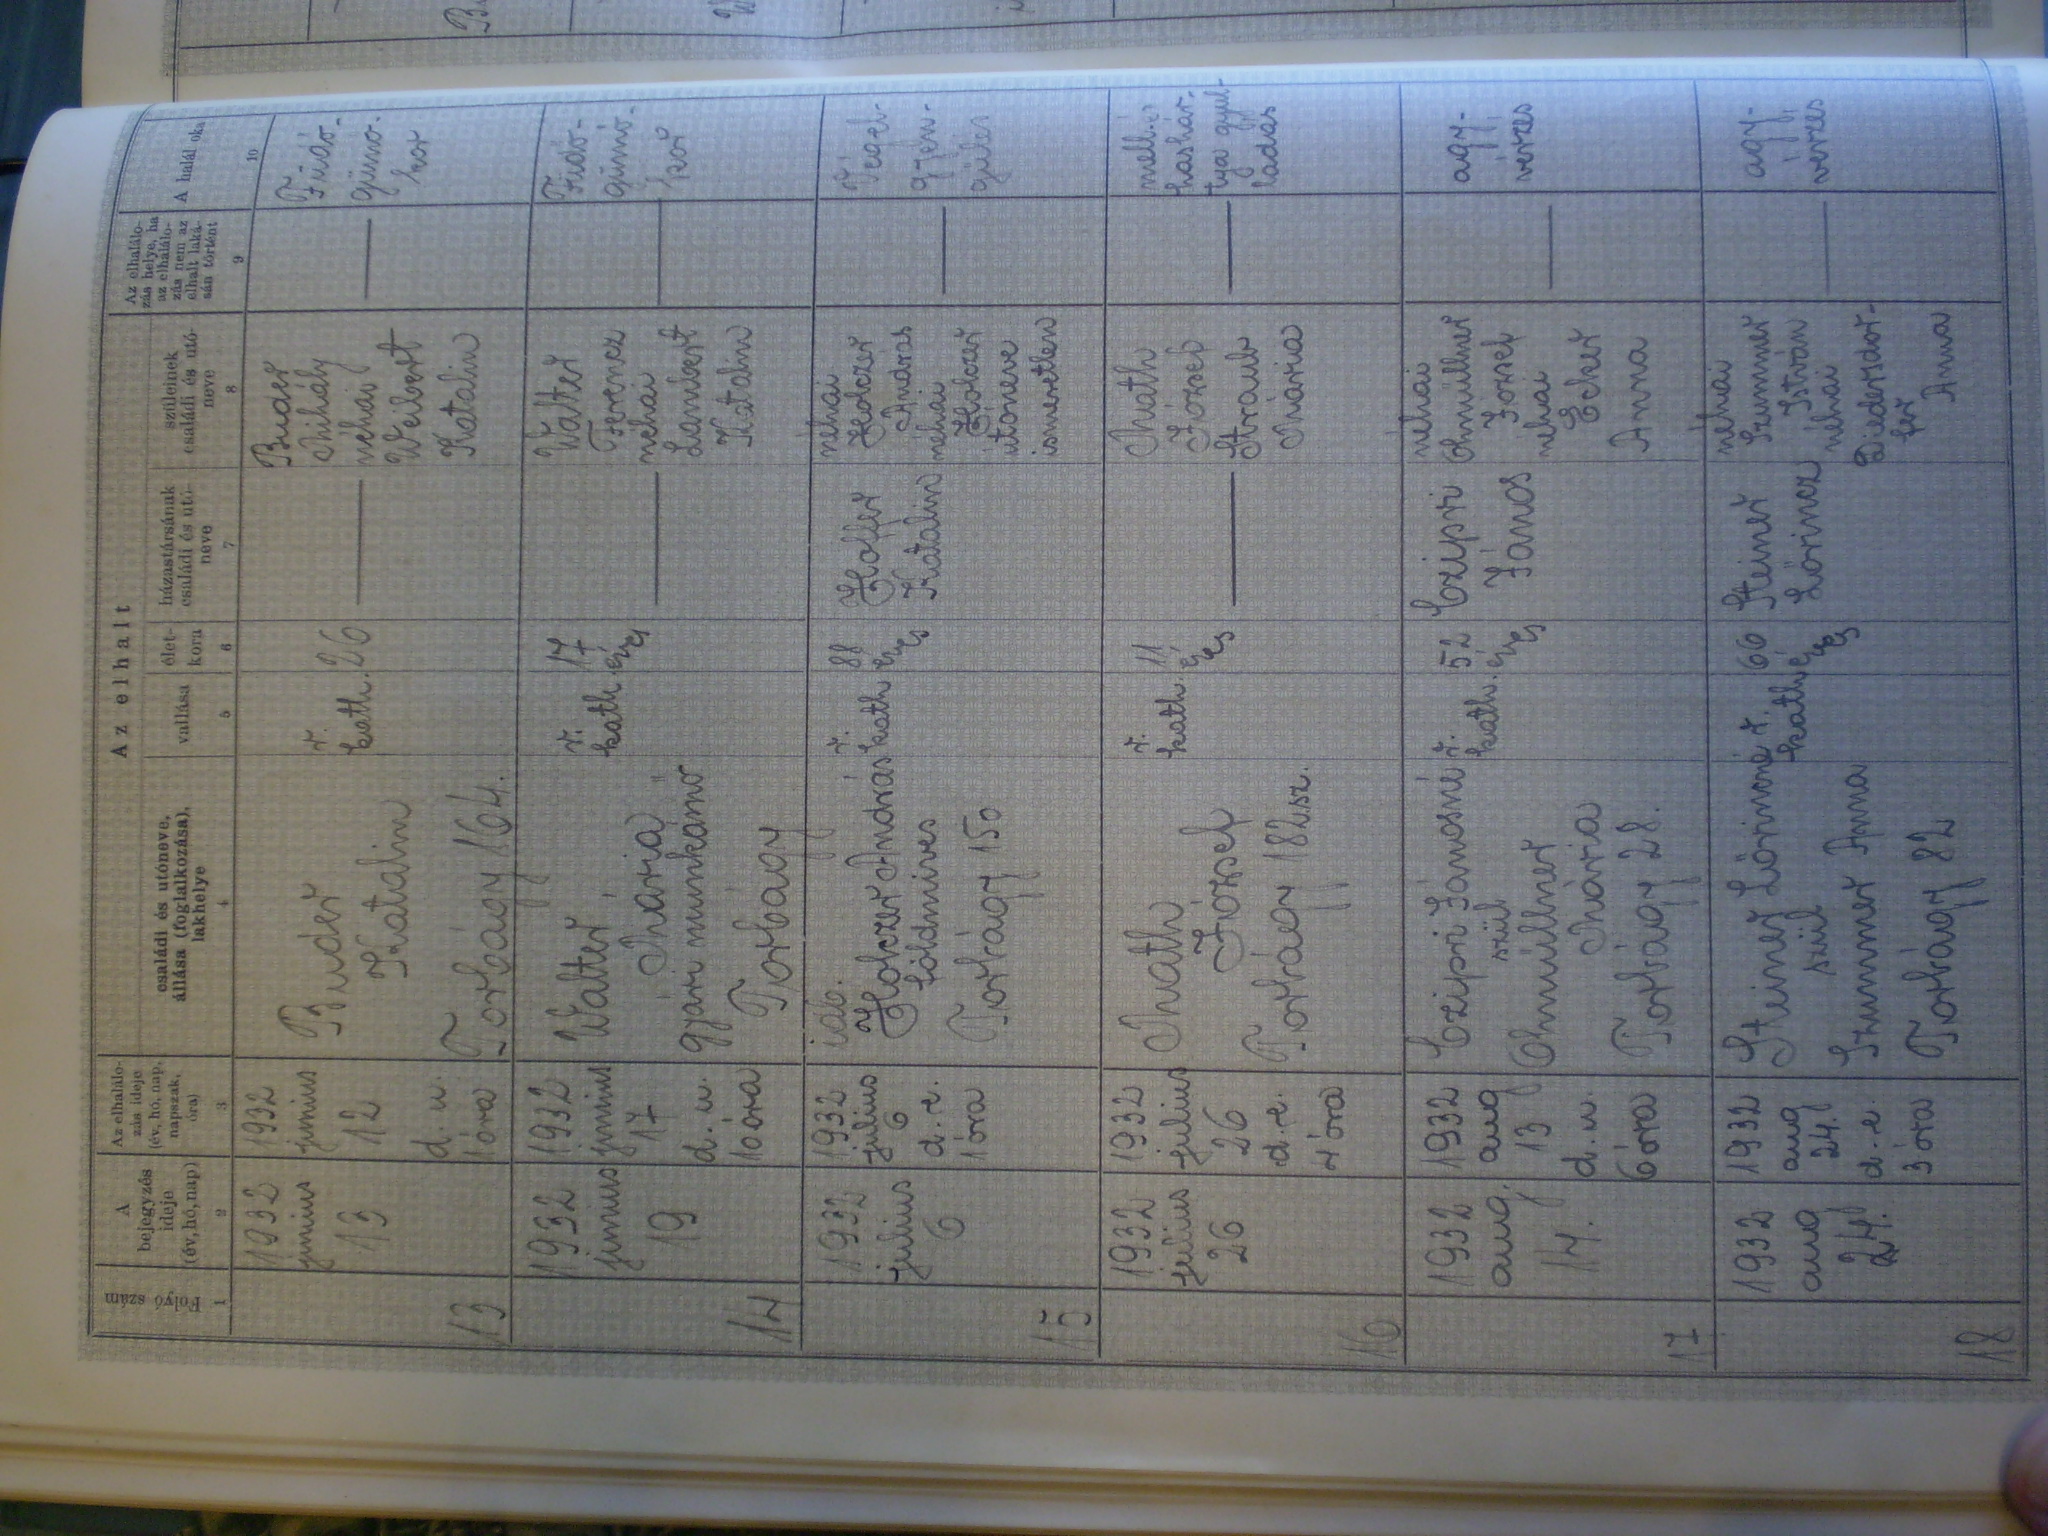 Az elhalt
Folyó szám
A
bejegyzés
ideje
(év, hó, nap)
Az elhaláló-
zás ideje
(év, hó, nap,
napszak,
óra)
családi és utóneve,
állása (foglalkozása),
lakhelye
vallása
élet-
kora
házastársának
családi és utó-
neve
szüleinek
családi és utó-
neve
Az elhaláló-
zás helye, ha
az elhaláló-
zás nem az
elhalt laká-
sán történt
A halál oka
1
2
3
4
5
6
7
8
9
10
13
1932
junius
13
1932
junius
12
d. u.
1 óra
Buder
Katalin
Torbágy 164.
r.
kath.
26
Buder
Mihály
néhai
Weibert
Katalin
Tüdő-
gümő-
kór
14
1932
junius
19
1932
junius
17
d. u.
10 óra
Walter
Mária
gyári munkásnő
Torbágy
r.
kath.
17
éves
Walter
Ferencz
néhai
Lambert
Katalin
Tüdő-
gümő-
kór
15
1932
julius
6
1932
julius
6
d. e.
1 óra
idő.
Holczer András
földmives
Torbágy 150
r.
kath
88
éves
Hoffer
Katalin
néhai
Holczer
András
néhai
Holczer
utóneve
ismeretlen
Végel-
gyen-
gülés
16
1932
julius
26
1932
julius
26
d. e.
4 óra
Math
József
Torbágy 182 sz.
r.
kath.
11
éves
Math
József
Straub
Mária
mell és
hashár-
tya gyul-
ladás
17
1932
aug.
14.
1932
aug
13
d. u.
6 óra
Czipri Jánosné
szül
Ohmüllner
Mária
Torbágy 28.
r.
kath.
52
éves
Czipri
János
néhai
Ohmüllner
József
néhai
Ecker
Anna
agy-
vérzés
18
1932
aug
24.
1932
aug
24.
d. e.
3 óra
Steiner Lőrincné
szül
Szummer Anna
Torbágy 82
r.
kath
60
éves
Steiner
Lőrincz
néhai
Szummer
István
néhai
Diedersdor-
fer
Anna
agy-
vérzés